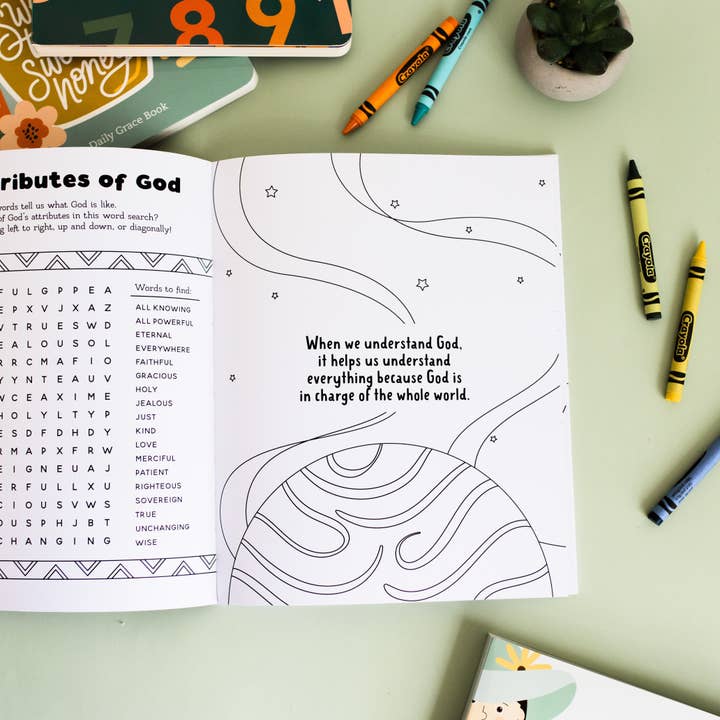 7 8 9
honey
Daily Grace Book
Crayola
Crayola
Crayola
Crayola
ributes of God
words tell us what God is like.
of God's attributes in this word search?
g left to right, up and down, or diagonally!
F U L G P P E A
E P X V J X A Z
V T R U E S W D
E A L O U S O L
R R C M A F I O
Y Y N T E A U V
W C E A X I M E
H O L Y L T Y P
E S D F D H D Y
R M A P X F R W
E I G N E U A J
E R F U L L X U
C I O U S V W S
O U S P H J B T
C H A N G I N G
Words to find:
ALL KNOWING
ALL POWERFUL
ETERNAL
EVERYWHERE
FAITHFUL
GRACIOUS
HOLY
JEALOUS
JUST
KIND
LOVE
MERCIFUL
PATIENT
RIGHTEOUS
SOVEREIGN
TRUE
UNCHANGING
WISE
When we understand God,
it helps us understand
everything because God is
in charge of the whole world.
Crayola